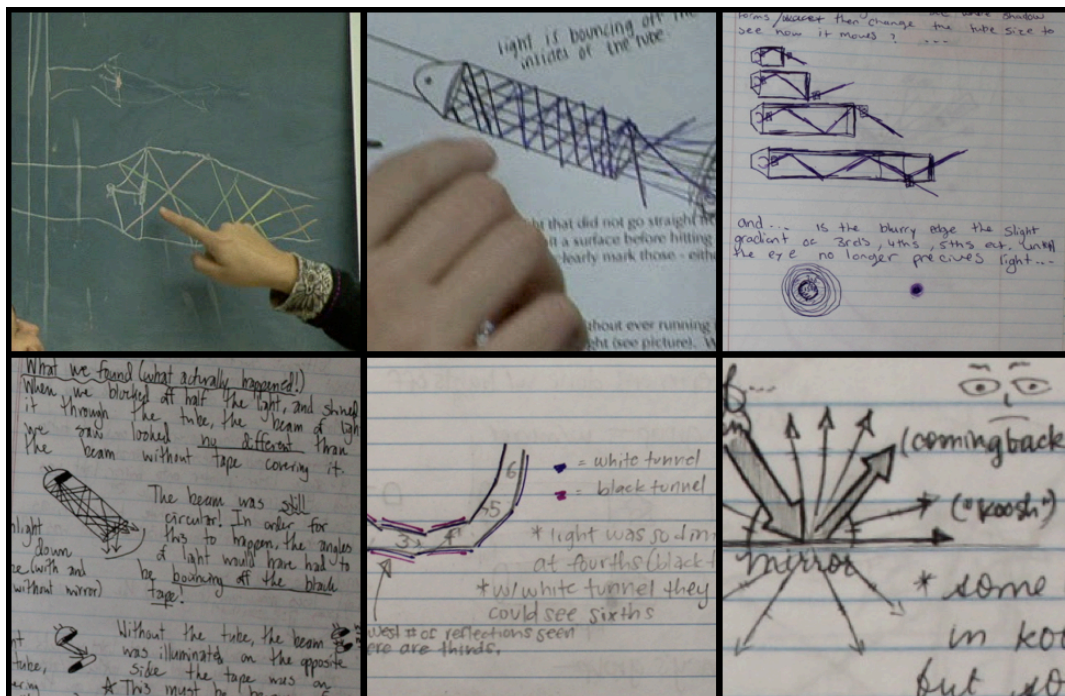 light is bouncing off the
insides of the tube.
ht that did not go straight
it a surface before hitting
clearly mark those - eith
thout ever running
ght (see picture). W
then change the tube size to
see how it moves? ....
and.... is the blurry edge the slight
gradient of 3rds, 4ths, 5ths ect. until
the eye no longer precives light...
What we found (what actually happened!)
When we blocked off half the light, and shined
it through the tube, the beam of light
we saw looked no different than
the beam without tape covering it.
The beam was still
circular! In order for
this to happen, the angles
of light would have had to
be bouncing off the black
tape!
light
down
(with and
without mirror)
Without the tube, the beam
was illuminated on the opposite
side the tape was on
This must be
tube,
6
5
4
3
= white tunnel
= black tunnel
* light was so dim
at fourths (black t
* w/white tunnel they
could see sixths
west # of reflections seen
ere are thirds.
(coming back
("koosh")
mirror
* some
in koo
but